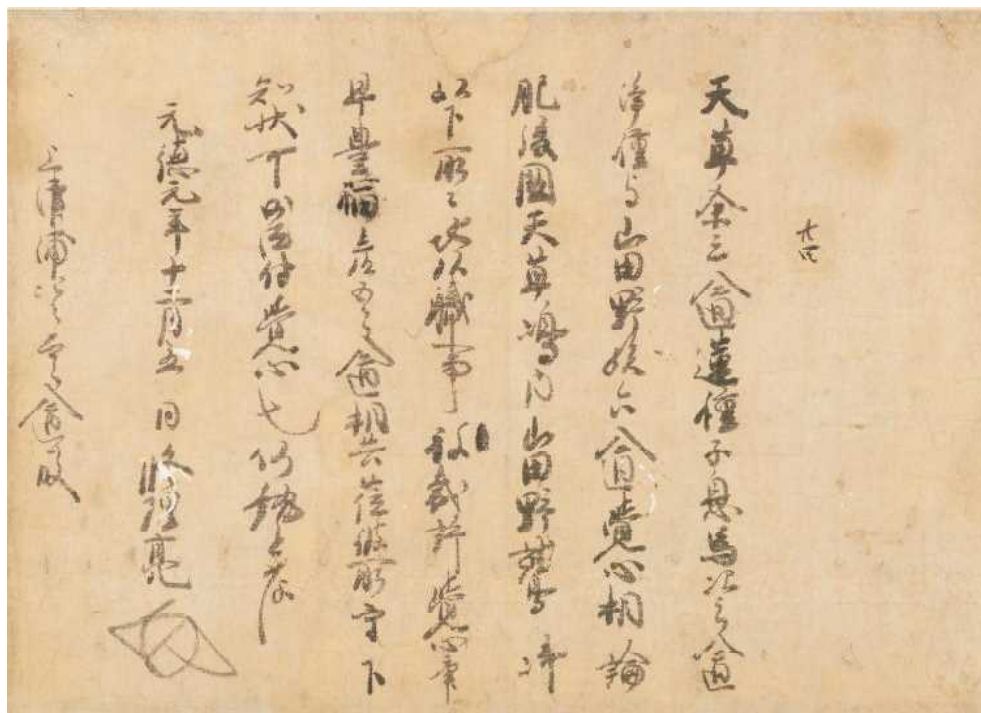 天草余三入道蓮種子息馬次郎入道
浄種与山田野孫六入道覚心相論
肥後国天草嶋内山田野
以下所々地頭職事 被裁許覚心畢
早豊福彦五郎入道相共莅彼所守下
知状可沙汰付覚心也仍執達如
元徳元年十二月五日修理亮
上津浦次郎入道殿